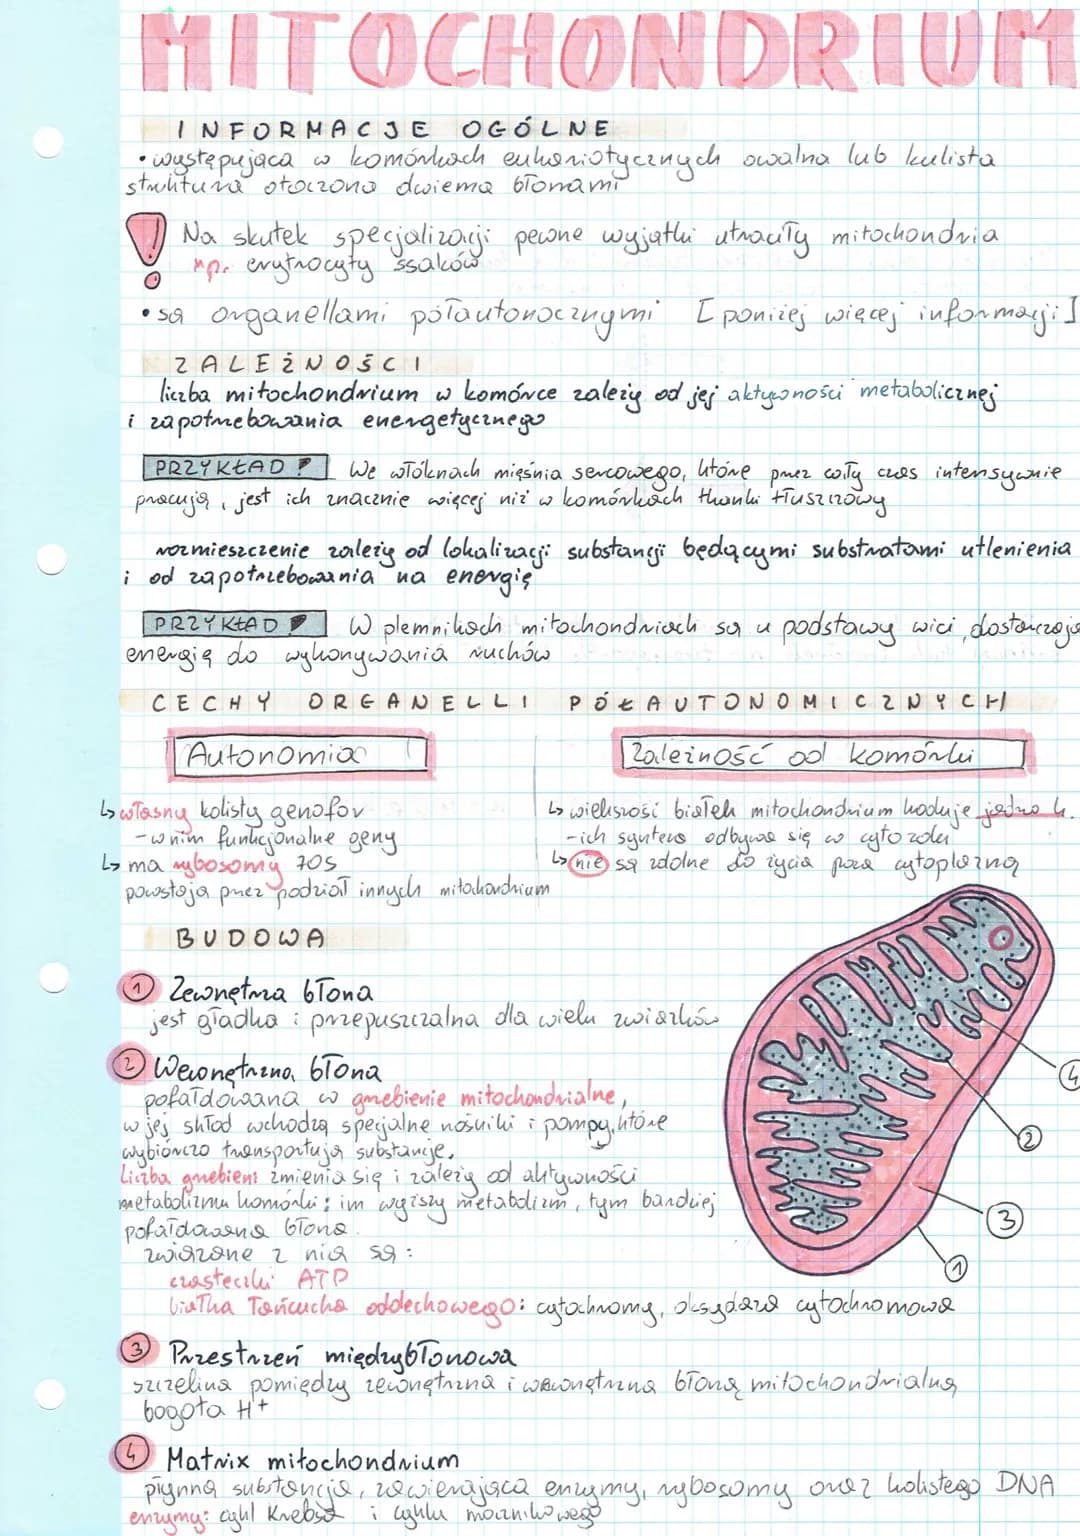 MITOCHONDRIUM
INFORMACJE OGÓLNE
• występująca w komórkach eukariotycznych owalna lub kulista
struktura otoczona dwiema błonami
! Na skutek specjalizacji pewne wyjątki utraciły mitochondria
np. erytrocyty ssaków
• są organellami półautonocznymi [poniżej więcej informacji]
ZALEŻNOŚCI
liczba mitochondrium w komórce zależy od jej aktywności metabolicznej
i zapotrzebowania energetycznego
PRZYKŁAD! We włóknach mięśnia sercowego, które przez cały czas intensywnie
pracują, jest ich znacznie więcej niż w komórkach tkanki tłuszczowy
rozmieszczenie zależy od lokalizacji substancji będącymi substratami utlenienia
i od zapotrzebowania na energię
PRZYKŁAD! W plemnikach mitochondriach są u podstawy wici, dostarczają
energię do wykonywania ruchów
CECHY ORGANELLI PÓŁAUTONOMICZNYCH
Autonomia
Zależność od komórki
↳ własny kolisty genofor
- w nim funkcjonalne geny
↳ ma rybosomy 70S
powstają przez podział innych mitochondrium
↳ większość białek mitochondrium koduje jądro k.
- ich synteza odbywa się w cytozolu
↳ nie są zdolne do życia poza cytoplazmą
BUDOWA
1 Zewnętrzna błona
jest gładka i przepuszczalna dla wielu związków
2 Wewnętrzna błona
pofałdowana w grzebienie mitochondrialne,
w jej skład wchodzą specjalne nośniki i pompy, które
wybiórczo transportują substancje.
Liczba grzebieni zmienia się i zależy od aktywności
metabolizmu komórki: im wyższy metabolizm, tym bardziej
pofałdowana błona.
związane z nią są:
cząsteczki ATP
białka łańcucha oddechowego: cytochromy, oksydaza cytochromowa
4
2
3
1
3 Przestrzeń międzybłonowa
szczelina pomiędzy zewnętrzną i wewnętrzną błoną mitochondrialną
bogata H+
4 Matrix mitochondrium
płynna substancja, zawierająca enzymy, rybosomy oraz kolistego DNA
enzymy: cykl Krebsa i cyklu mocznikowego